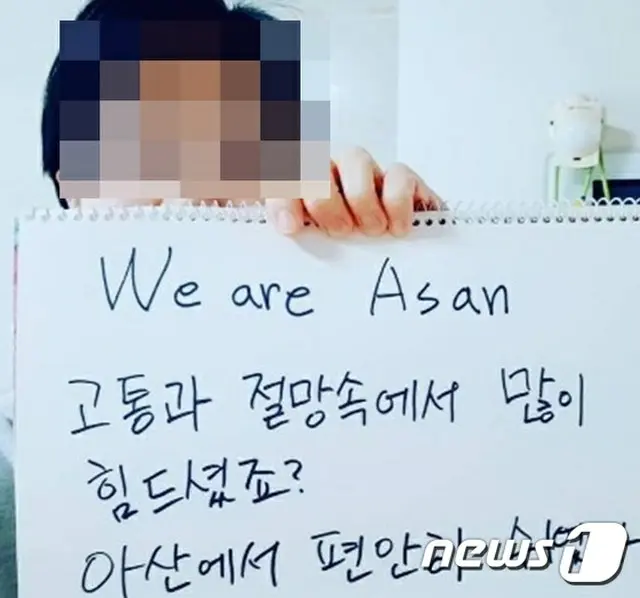 We are Asan
고통과 절망속에서 많이
힘드셨죠?
아산에서
news1